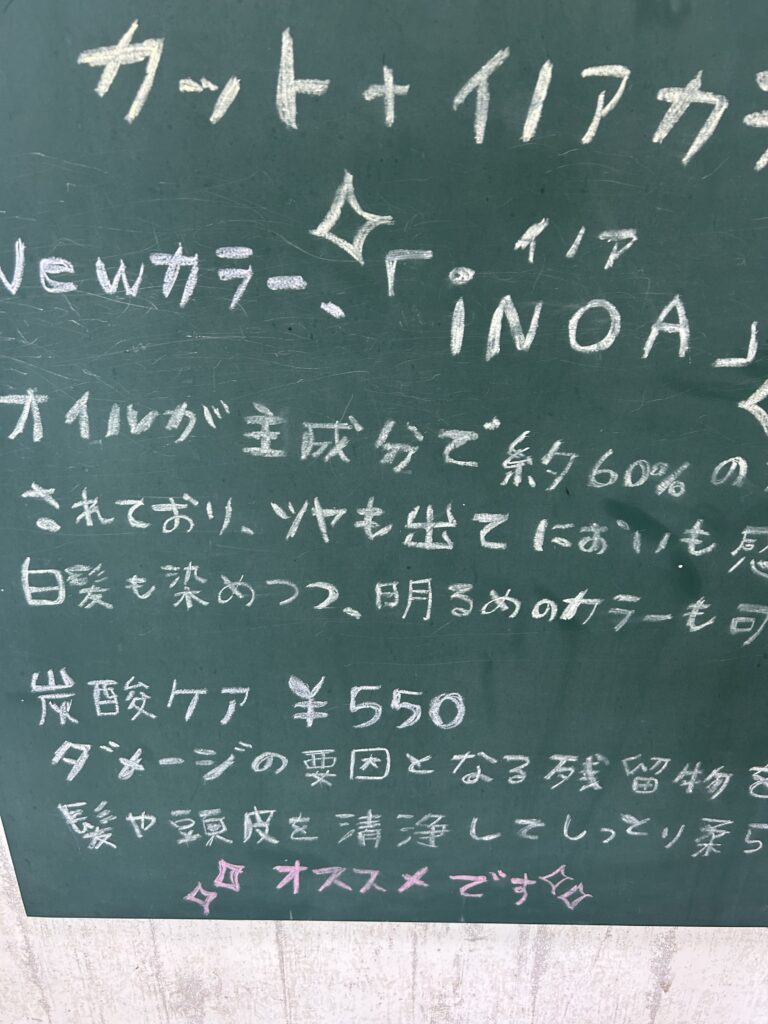 カット+イノアカラ
Newカラー、「iNOA」
イノア
オイルが主成分で約60%の
されており、ツヤも出てにおいも感
白髪も染めつつ、明るめのカラーも可
炭酸ケア ¥550
ダメージの要因となる残留物を
髪や頭皮を清浄してしっとり柔ら
オススメです